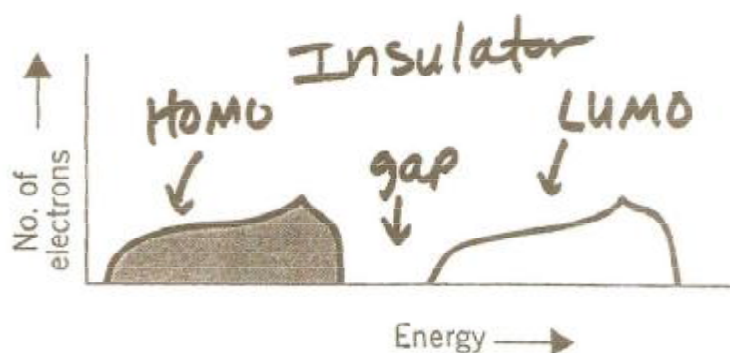 Insulator
HOMO
LUMO
gap
No. of
electrons
Energy